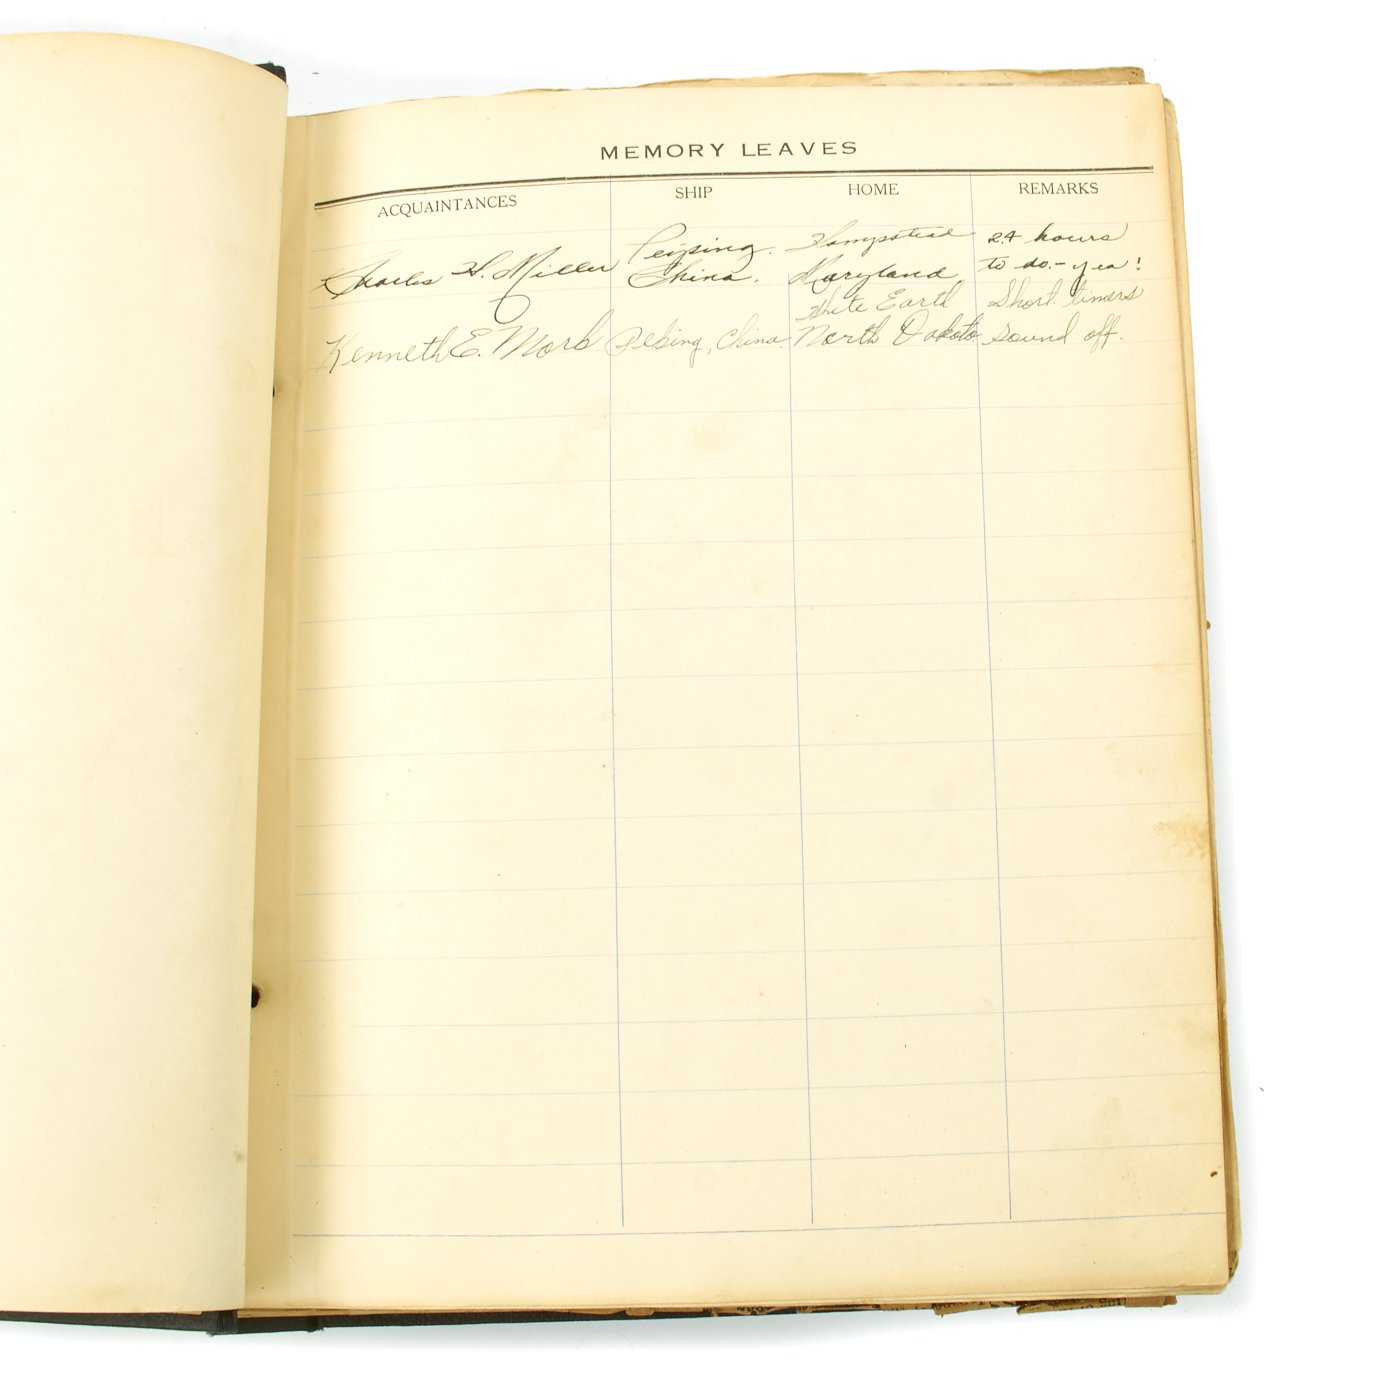 MEMORY LEAVES
ACQUAINTANCES SHIP HOME REMARKS
Peiping. Hampstead 24 hours
Charles H. Miller China. Maryland to do.- yea!
White Earth Short timers
Kenneth E. Peking, China North Dakota sound off.